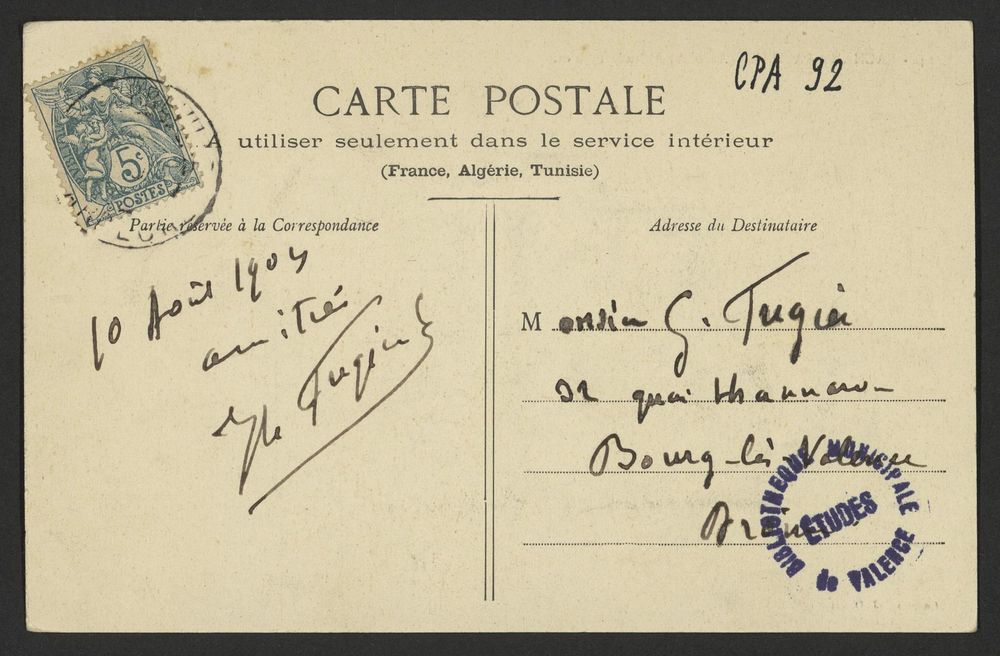 CPA 92
CARTE POSTALE
A utiliser seulement dans le service intérieur
(France, Algérie, Tunisie)
5c
POSTES
Partie réservée à la Correspondance
10 Août 1904
amitiés
Tugier
Adresse du Destinataire
Monsieur G. Tugier
32 quai
Bourg-lès-Valence
Drôme
BIBLIOTHEQUE MUNICIPALE
ETUDES
de VALENCE